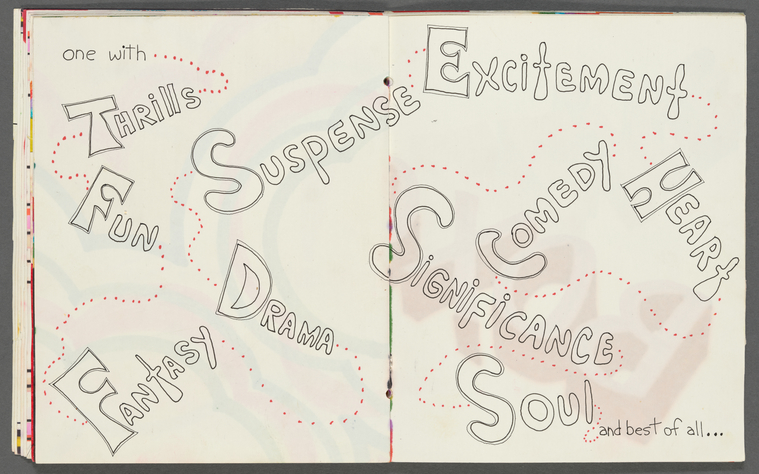 one with
Thrills
Fun
Fantasy
Drama
Suspense
Excitement
Heart
Comedy
Significance
Soul
and best of all...